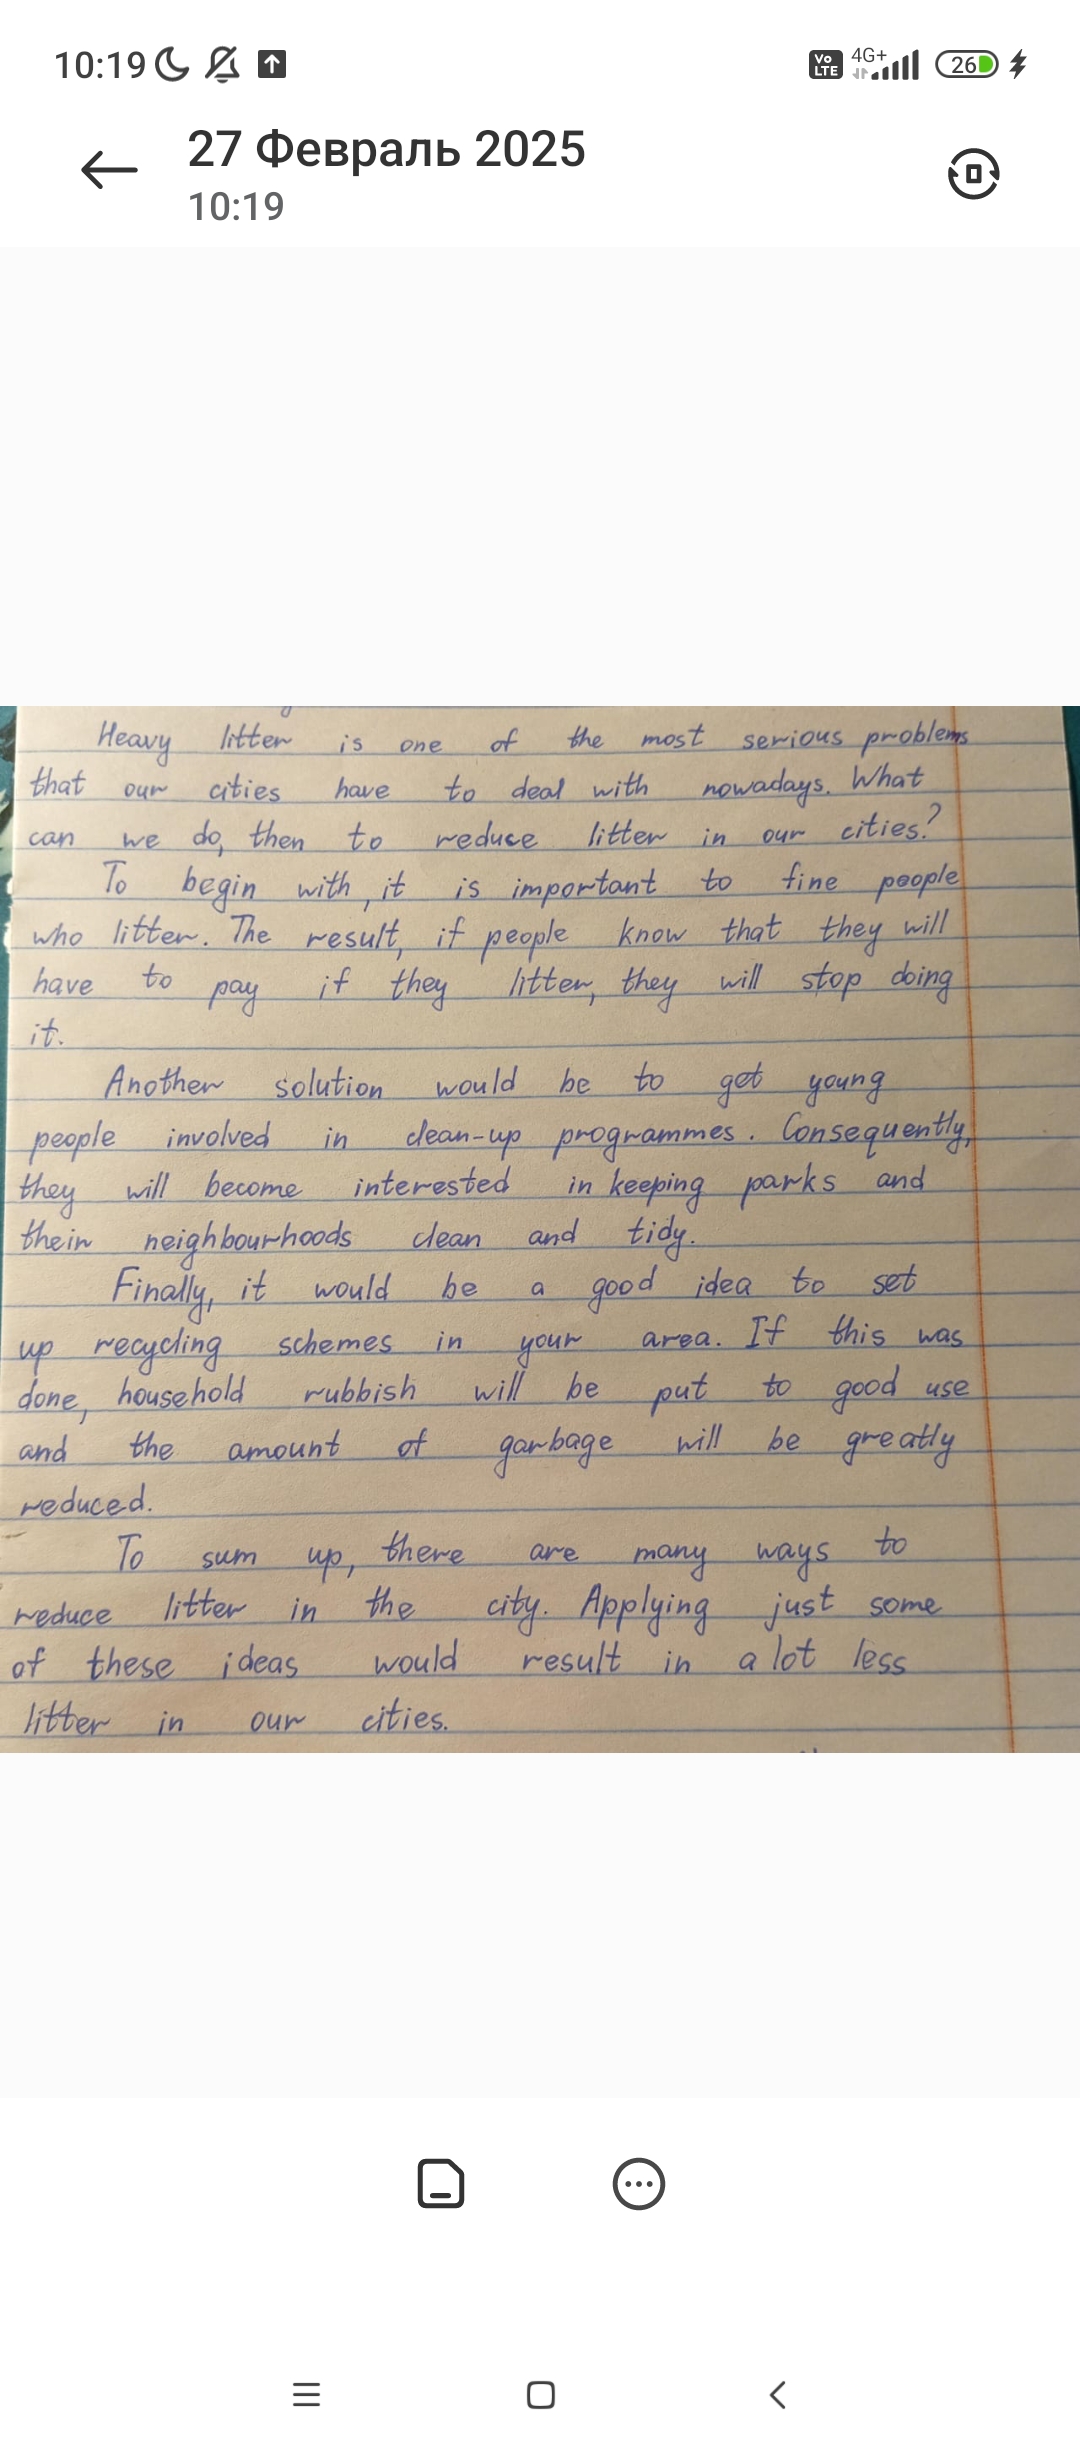 10:19
Vo LTE 4G+ 26
27 Февраль 2025
10:19
Heavy litter is one of the most serious problems
that our cities have to deal with nowadays. What
can we do, then to reduce litter in our cities?
To begin with, it is important to fine people
who litter. The result, if people know that they will
have to pay if they litter, they will stop doing
it.
Another solution would be to get young
people involved in clean-up programmes. Consequently,
they will become interested in keeping parks and
their neighbourhoods clean and tidy.
Finally, it would be a good idea to set
up recycling schemes in your area. If this was
done, household rubbish will be put to good use
and the amount of garbage will be greatly
reduced.
To sum up, there are many ways to
reduce litter in the city. Applying just some
of these ideas would result in a lot less
litter in our cities.